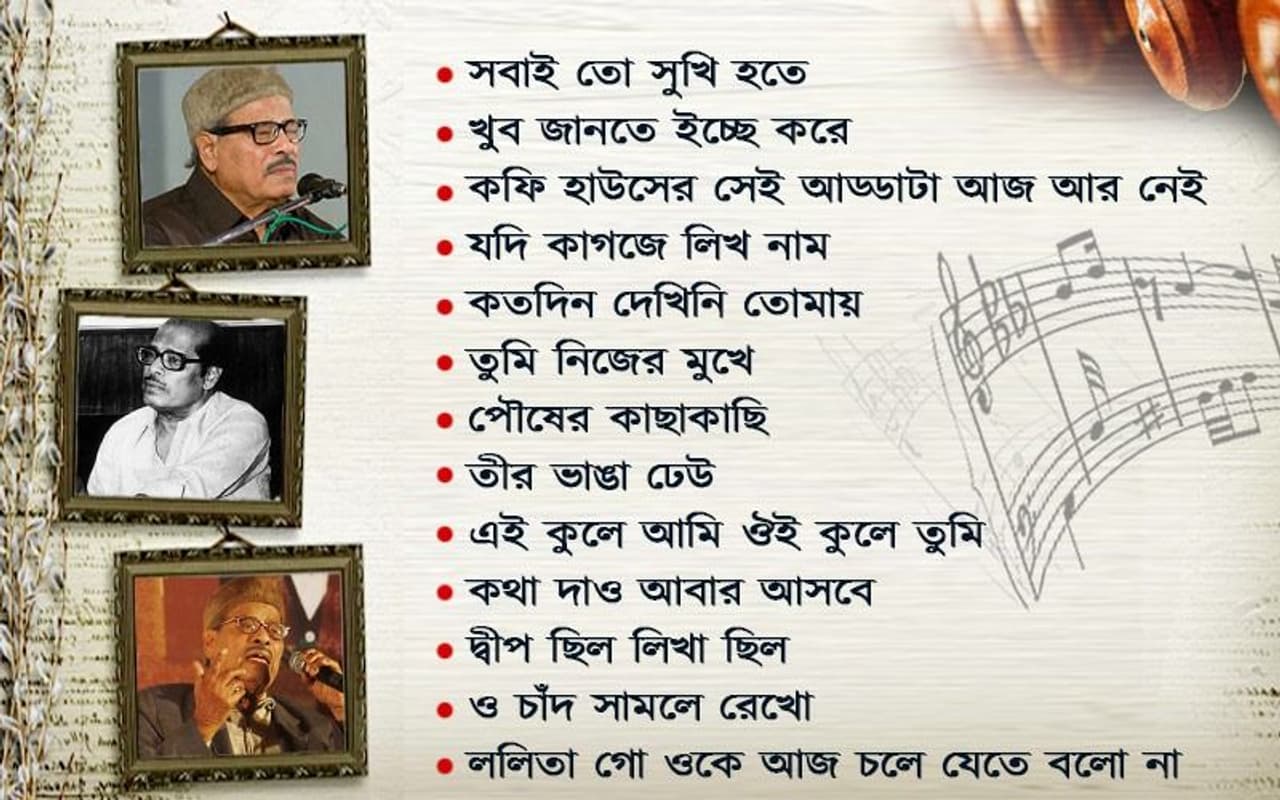 সবাই তো সুখি হতে
খুব জানতে ইচ্ছে করে
কফি হাউসের সেই আড্ডাটা আজ আর নেই
যদি কাগজে লিখ নাম
কতদিন দেখিনি তোমায়
তুমি নিজের মুখে
পৌষের কাছাকাছি
তীর ভাঙা ঢেউ
এই কুলে আমি ঔই কুলে তুমি
কথা দাও আবার আসবে
দ্বীপ ছিল লিখা ছিল
ও চাঁদ সামলে রেখো
ললিতা গো ওকে আজ চলে যেতে বলো না